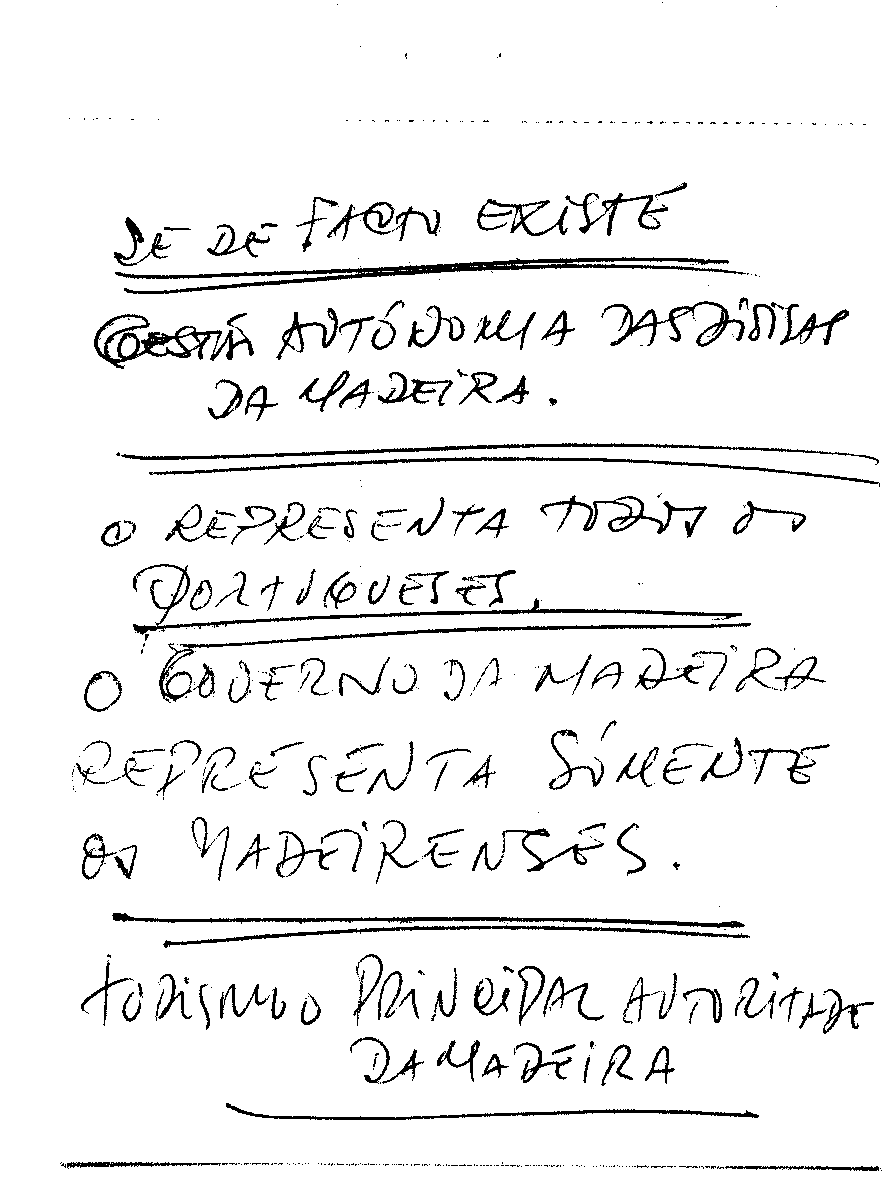 SE DE FACTO EXISTE
GESTÃO AUTÓNOMIA DAS DIVISAS
DA MADEIRA.
O REPRESENTA TODOS OS
PORTUGUESES.
O GOVERNO DA MADEIRA
REPRESENTA SÓMENTE
OS MADEIRENSES.
PRINCIPAL AUTORITADE
DA MADEIRA